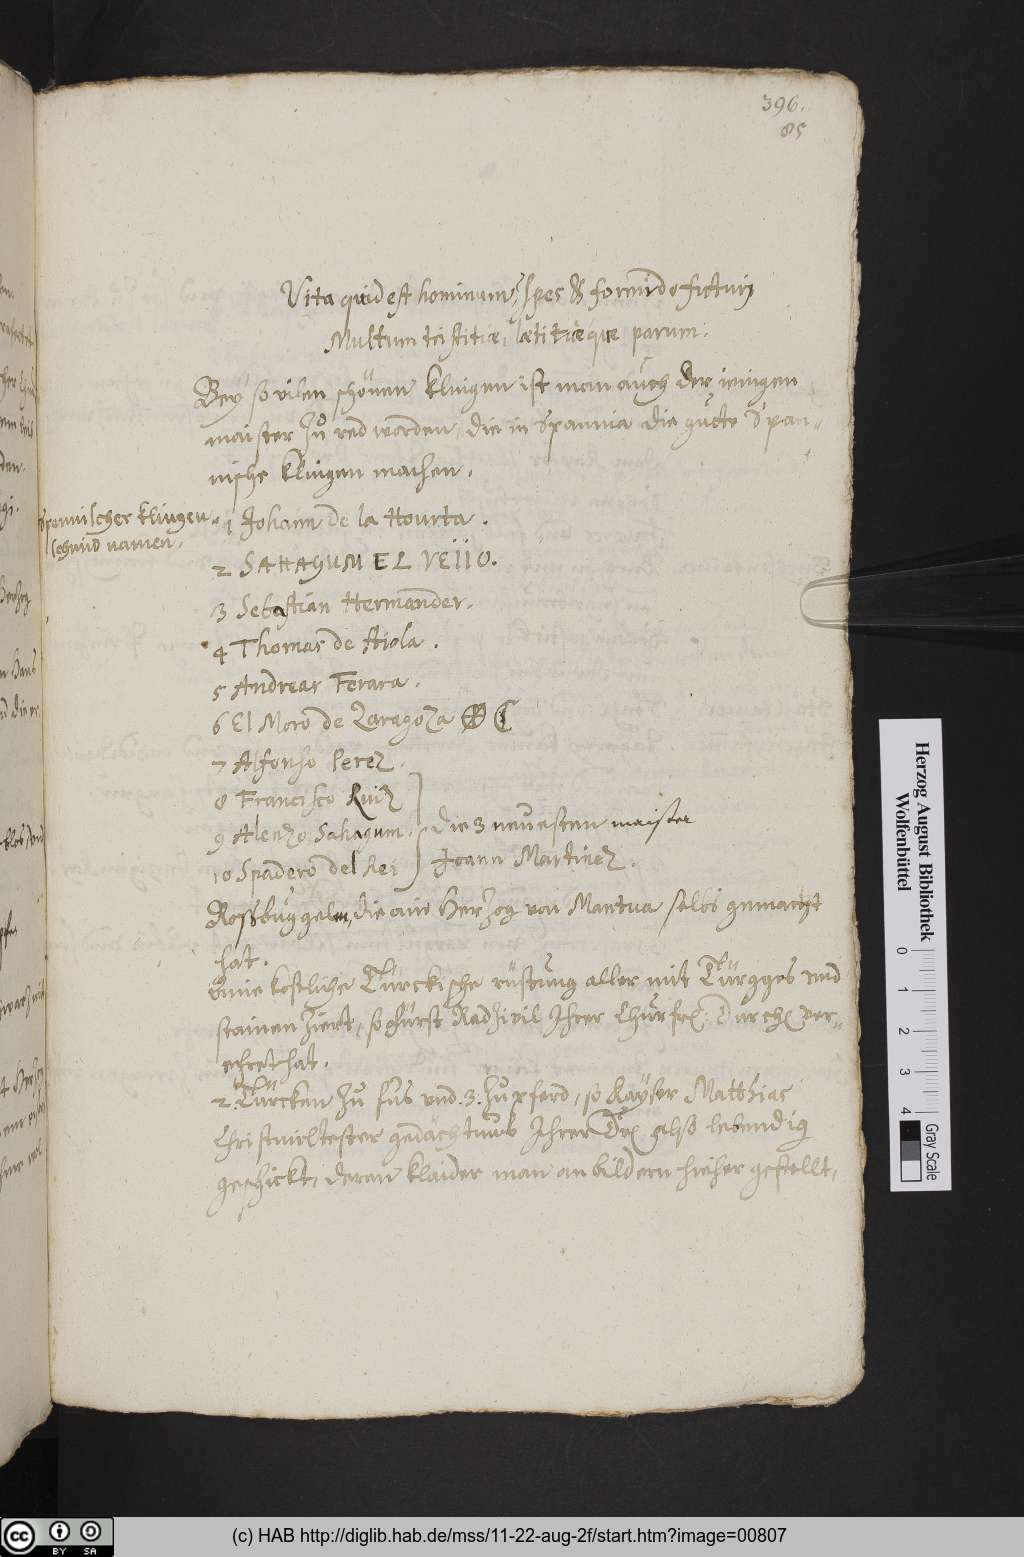 396.
85
Vita quid est hominum? spes & formido futuri
Multum tristitiæ, lætitiæque parum.
Bey so vilen schönen klingen ist man auch der ienigen
maister zu red worden, die in Spannia die gutte Span-
nische klingen machen.
Spannischer klingen
schmid namen.
1 Johann de la Hourta.
2 SAHAGUM EL VEIIO.
3 Sebastian Hermander.
4 Thomas de Aiola.
5 Andrear Ferara.
6 El Moro de Zaragoza
7 Alfonso Perez.
8 Francisco Ruiz
9 Alenzo Sahagum.
10 Spadero del Rei
die 3 neuesten maister
Joann Martinez.
Rossbuggeln, die ain Herzog von Mantua selbs gemacht
hat.
Eine kostliche Türckische rüstung aller mit Türgges und
stainen ziert, so fürst Radzivil Ihrer Churfr: Durchl ver-
ehret hat.
2. Türcken zu fus und .3. zu pferd, so Kayser Matthias
Christmiltester gedächtnus Ihrer Dl. alss lebendig
geschickt, deren klaider man an bildern hieher gestellt,
Herzog August Bibliothek
Wolfenbüttel
0 1 2 3 4
Gray Scale
cc BY SA
(c) HAB http://diglib.hab.de/mss/11-22-aug-2f/start.htm?image=00807